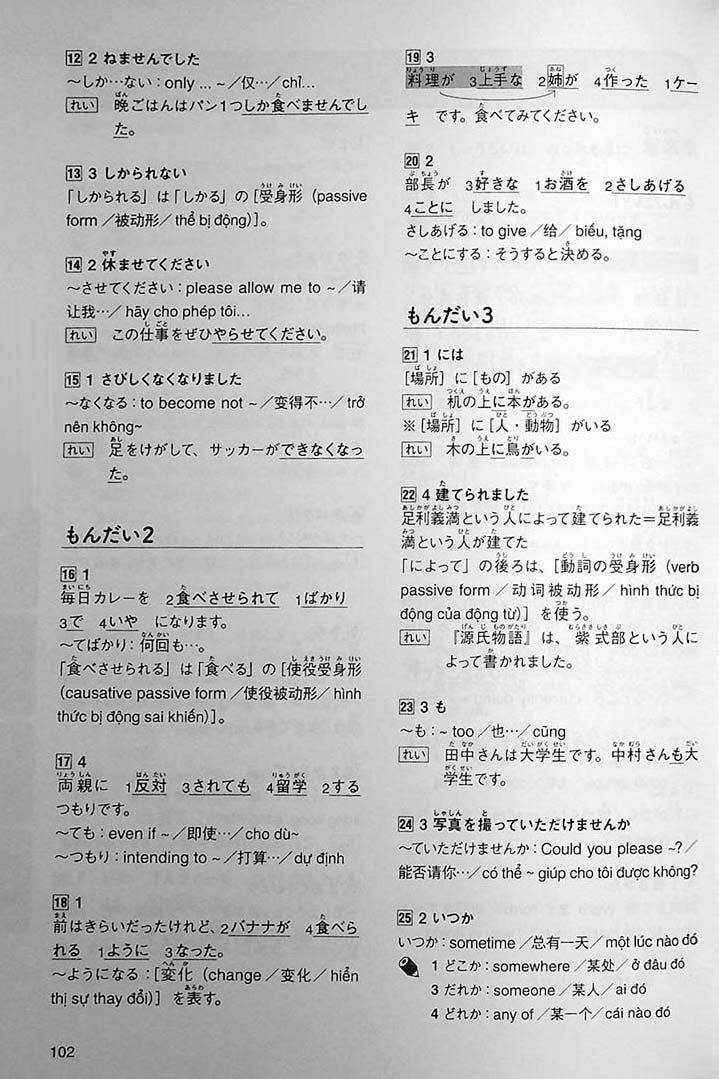 12 2 ねませんでした
～しか…ない：only ... ～／仅…／chỉ…
れい 晩ごはんはパン1つしか食べませんでし
た。
13 3 しかられない
「しかられる」は「しかる」の［受身形（passive
form ／被动形／ thể bị động)］。
14 2 休ませてください
～させてください：please allow me to ～／请
让我…／ hãy cho phép tôi…
れい この仕事をぜひやらせてください。
15 1 さびしくなくなりました
～なくなる：to become not ～／变得不…／ trở
nên không~
れい 足をけがして、サッカーができなくなっ
た。
もんだい2
16 1
毎日カレーを 2食べさせられて 1ばかり
3で 4いや になります。
～てばかり：何回も…。
「食べさせられる」は「食べる」の［使役受身形
(causative passive form ／使役被动形／ hình
thức bị động sai khiến)］。
17 4
両親に 1反対 3されても 4留学 2する
つもりです。
～ても：even if ～／即使…／cho dù~
～つもり：intending to ～／打算…／ dự định
18 1
前はきらいだったけれど、2バナナが 4食べら
れる 1ように 3なった。
～ようになる：［変化（change ／变化／ hiển
thị sự thay đổi)］を表す。
102
19 3
料理が 3上手な 2姉が 4作った 1ケー
キ です。食べてみてください。
20 2
部長が 3好きな 1お酒を 2さしあげる
4ことに しました。
さしあげる：to give ／给／ biếu, tặng
～ことにする：そうすると決める。
もんだい3
21 1 には
［場所］に［もの］がある
れい 机の上に本がある。
※［場所］に［人・動物］がいる
れい 木の上に鳥がいる。
22 4 建てられました
足利義満という人によって建てられた＝足利義
満という人が建てた
「によって」の後ろは、［動詞の受身形（verb
passive form ／动词被动形／ hình thức bị
động của động từ)］を使う。
れい 『源氏物語』は、紫式部という人に
よって書かれました。
23 3 も
～も：~ too ／也…／ cũng
れい 田中さんは大学生です。中村さんも大
学生です。
24 3 写真を撮っていただけませんか
～ていただけませんか：Could you please ~?／
能否请你…／có thể ~ giúp cho tôi được không?
25 2 いつか
いつか：sometime ／总有一天／ một lúc nào đó
1 どこか：somewhere ／某处／ ở đâu đó
3 だれか：someone ／某人／ ai đó
4 どれか：any of ／某一个／ cái nào đó